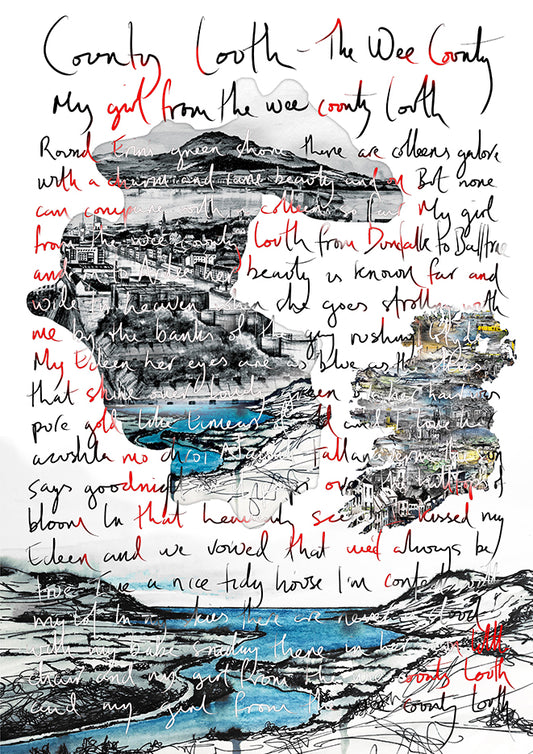 County Louth - The Wee County
My girl from the wee county Louth
Round Erins green shore there are colleens galore
with a charm and rare beauty and all But none
can compare with a colleen so fair My girl
from the wee county Louth from Dundalk to Baltray
and on to Ardee her beauty is known far and
wide in heaven when she goes strolling with
me by the banks of the rushing
My Eileen her eyes are as blue as the
that shine over green her hair was
pure gold like of old and I love her
acushla mo chroi Mamie Fallan the sun
says goodnight over the
bloom In that heavenly scene I kissed my
Eileen and we vowed that we'd always be
true I've a nice tidy house I'm content with
my lot In skies there are never cloud
with my babe smiling there in her own little
chair and my girl from the wee county Louth
and my girl from the wee County Louth